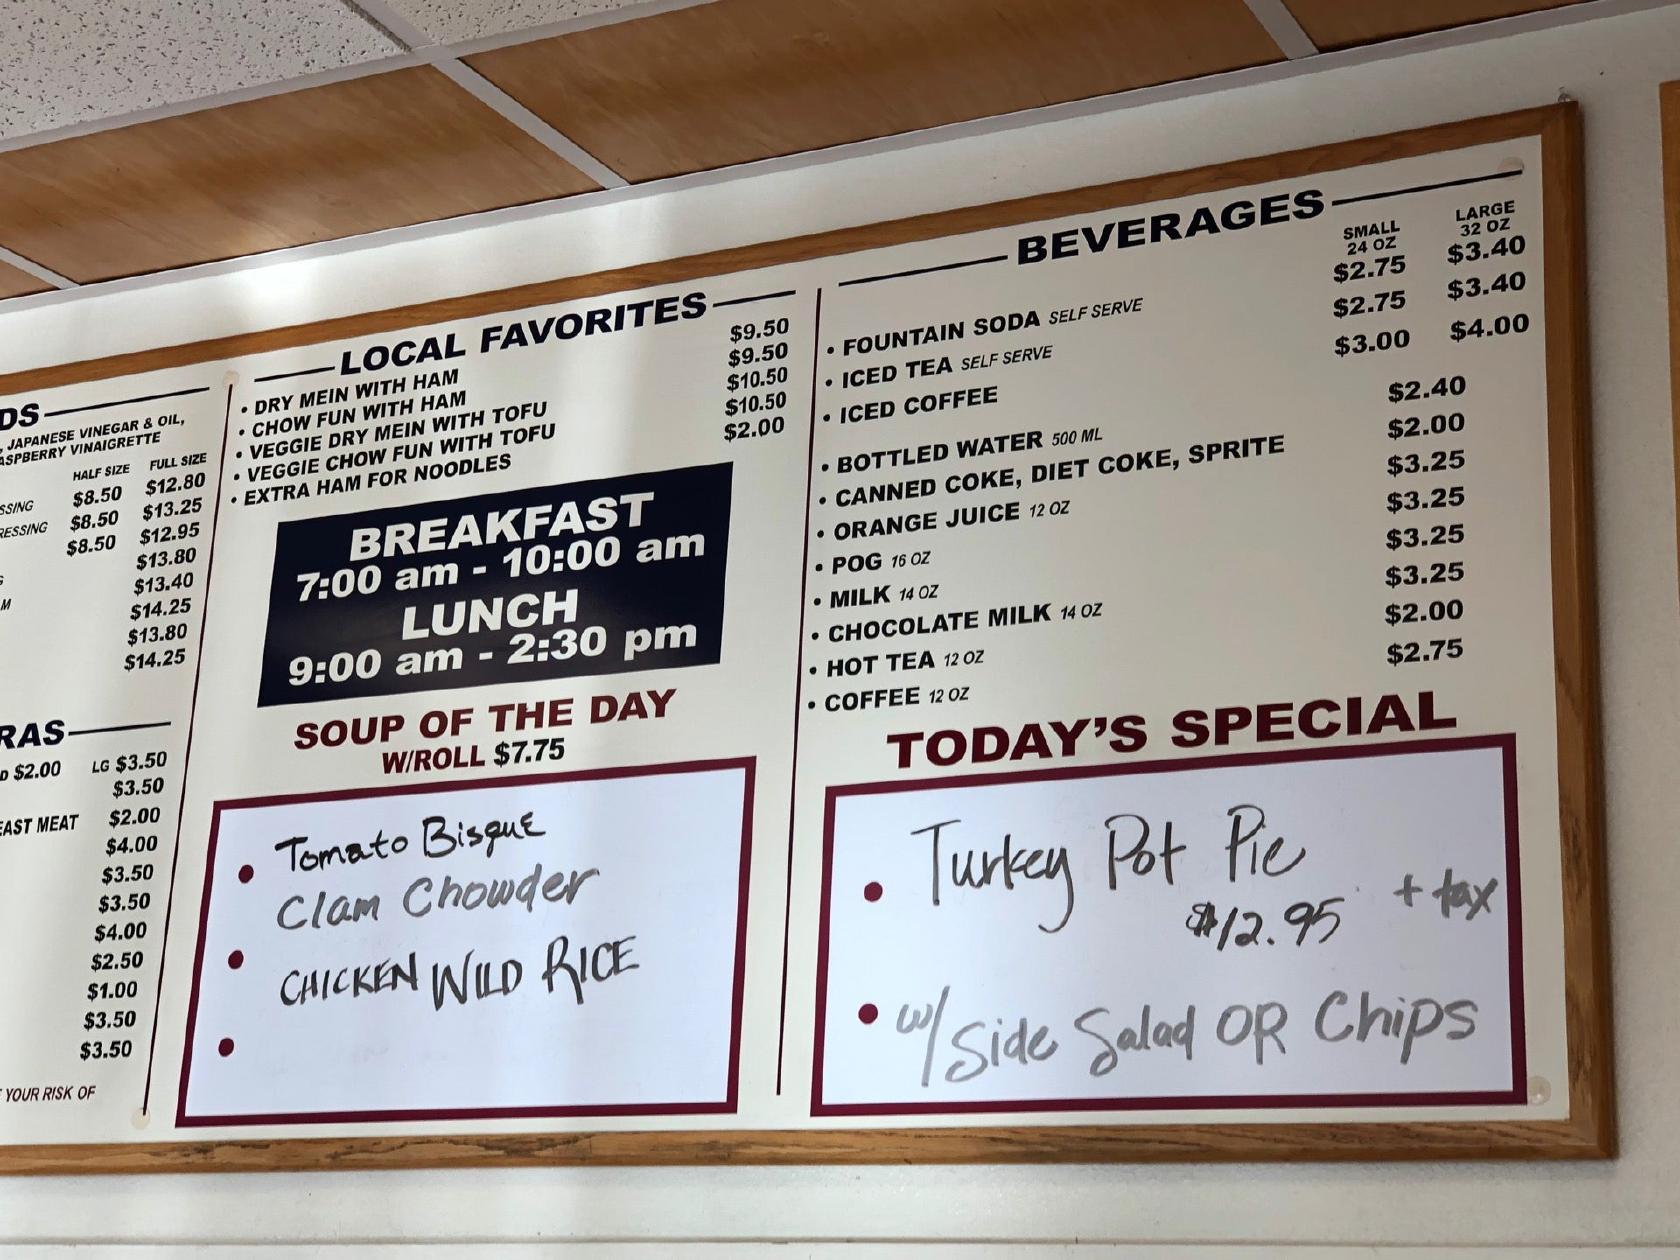 DS
, JAPANESE VINEGAR & OIL,
ASPBERRY VINAIGRETTE
HALF SIZE FULL SIZE
SSING $8.50 $12.80
RESSING $8.50 $13.25
$8.50 $12.95
$13.80
$13.40
M $14.25
$13.80
$14.25
RAS
D $2.00 LG $3.50
$3.50
EAST MEAT $2.00
$4.00
$3.50
$3.50
$4.00
$2.50
$1.00
$3.50
$3.50
YOUR RISK OF
LOCAL FAVORITES
• DRY MEIN WITH HAM $9.50
• CHOW FUN WITH HAM $9.50
• VEGGIE DRY MEIN WITH TOFU $10.50
• VEGGIE CHOW FUN WITH TOFU $10.50
• EXTRA HAM FOR NOODLES $2.00
BREAKFAST
7:00 am - 10:00 am
LUNCH
9:00 am - 2:30 pm
SOUP OF THE DAY
W/ROLL $7.75
• Tomato Bisque
Clam Chowder
• CHICKEN WILD RICE
•
BEVERAGES
SMALL LARGE
24 OZ 32 OZ
• FOUNTAIN SODA SELF SERVE $2.75 $3.40
• ICED TEA SELF SERVE $2.75 $3.40
• ICED COFFEE $3.00 $4.00
• BOTTLED WATER 500 ML $2.40
• CANNED COKE, DIET COKE, SPRITE $2.00
• ORANGE JUICE 12 OZ $3.25
• POG 16 OZ $3.25
• MILK 14 OZ $3.25
• CHOCOLATE MILK 14 OZ $3.25
• HOT TEA 12 OZ $2.00
• COFFEE 12 OZ $2.75
TODAY'S SPECIAL
• Turkey Pot Pie
$12.95 + tax
• w/ Side Salad OR Chips